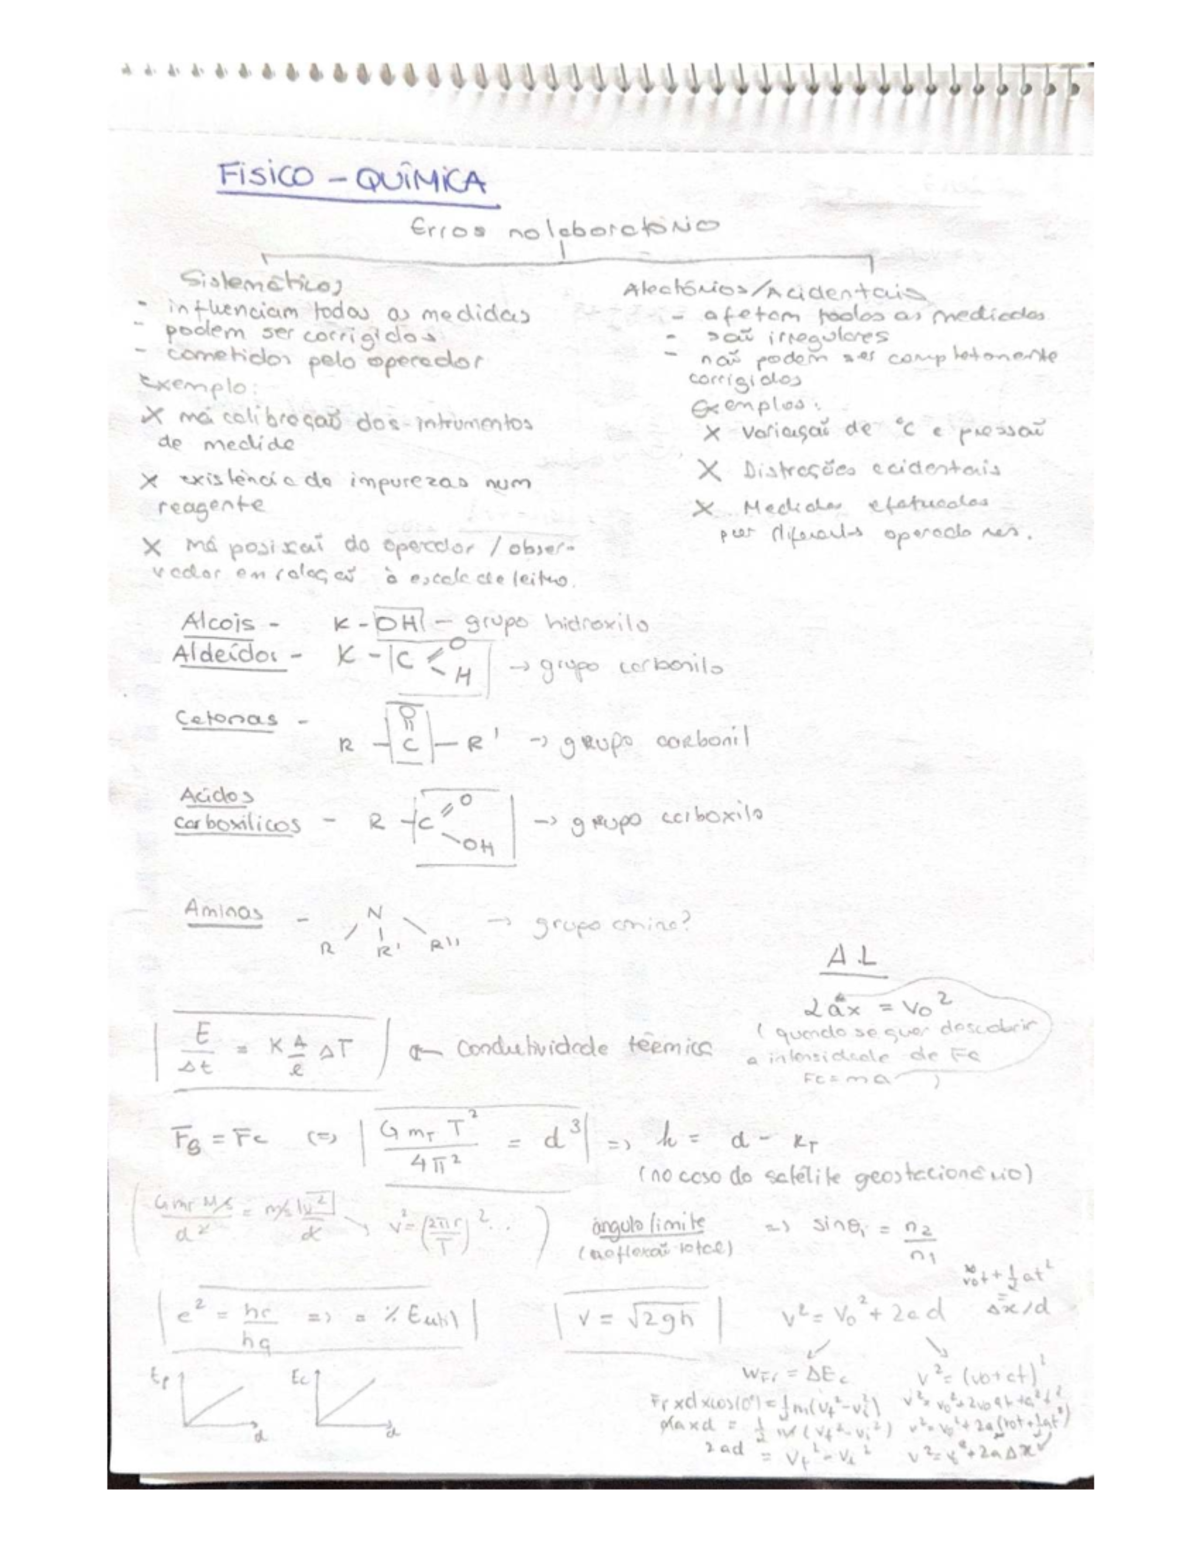 FISICO - QUÍMICA
Erros no laboratório
Sistemáticos
- influenciam todas as medidas
- podem ser corrigidos
- cometidos pelo operador
Exemplo:
X má calibração dos intrumentos
de medida
X existência de impurezas num
reagente
X má posição do operador / obser-
vador em relação à escala de leitura.
Aleatórios/Acidentais
- afetam todas as medidas
- são irregulares
- não podem ser completamente
corrigidos
Exemplos:
X Variação de °C e pressão
X Distrações acidentais
X Medidas efetuadas
por diferentes operadores.
Alcois - R - OH - grupo hidroxilo
Aldeídos - R - C O H → grupo carbonilo
Cetonas - R - C O - R' → grupo carbonil
Acidos
carboxilicos - R - C O OH → grupo carboxilo
Aminas - N R R' R'' → grupo amina?
A.L
2ax = v0²
(quando se quer descobrir
a intensidade de Fc
Fc = ma)
E/Δt = K A/e ΔT ← Condutividade térmica
Fg = Fc (=) G mT T²/4π² = d³ => h = d - rT
(no caso do satélite geostacionário)
G mT ms/d² = ms v²/d → v² = (2πr/T)² ...
ângulo limite => sinθi = n2/n1
(reflexão total)
e² = hc/hq => = % Eutil
v = √2gh
v² = v0² + 2ad
v0t + ½at²
=
Δx/d
Ep d
Ec d
WFr = ΔEc
Fr x d x cos(0°) = ½ m (vf² - vi²)
m a x d = ½ m (vf² - vi²)
2ad = vf² - vi²
v² = (v0 + at)²
v² = v0² + 2v0at + a²t²
v² = v0² + 2a(v0t + ½at²)
v² = v0² + 2aΔx